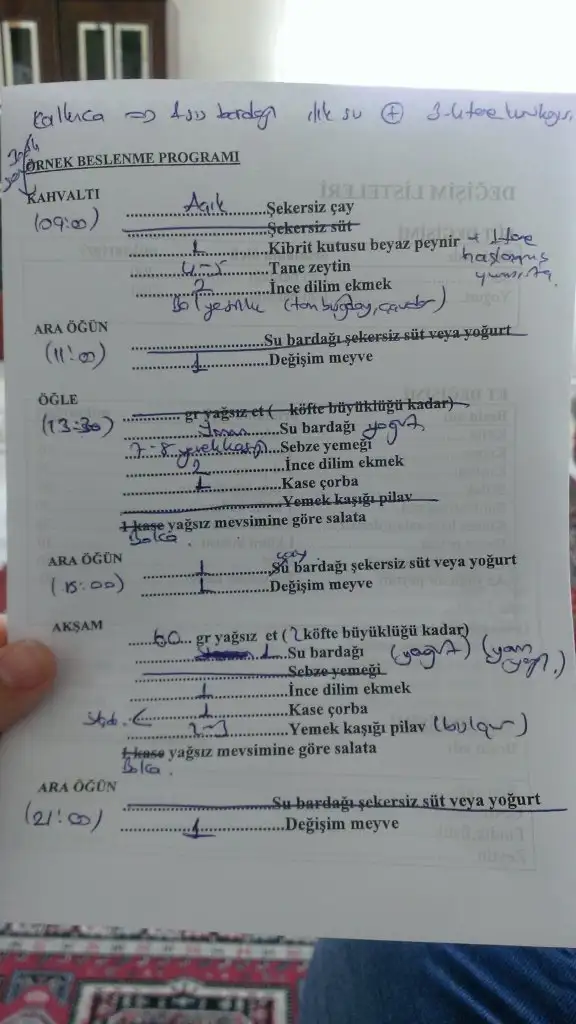 Kalkınca => 1 su bardağı ılık su + 3-4 tane kuru kayısı
ÖRNEK BESLENME PROGRAMI
KAHVALTI
(09:00)
Açık Şekersiz çay
Şekersiz süt
1 Kibrit kutusu beyaz peynir + 1 tane haşlanmış yumurta
4-5 Tane zeytin
2 İnce dilim ekmek
Bol yeşillik (tam buğday, çavdar)
ARA ÖĞÜN
(11:00)
Su bardağı şekersiz süt veya yoğurt
1 Değişim meyve
ÖĞLE
(13:30)
gr yağsız et ( köfte büyüklüğü kadar)
Su bardağı yoğurt
7-8 yemek kaşığı Sebze yemeği
2 İnce dilim ekmek
1 Kase çorba
Yemek kaşığı pilav
1 kase yağsız mevsimine göre salata
Bolca
ARA ÖĞÜN
(15:00)
çay
1 Su bardağı şekersiz süt veya yoğurt
1 Değişim meyve
AKŞAM
60 gr yağsız et (2 köfte büyüklüğü kadar)
1 Su bardağı (yoğurt) (yarım yağlı)
Sebze yemeği
1 İnce dilim ekmek
1 Kase çorba
2-3 Yemek kaşığı pilav (bulgur)
1 kase yağsız mevsimine göre salata
Bolca
ARA ÖĞÜN
(21:00)
Su bardağı şekersiz süt veya yoğurt
1 Değişim meyve